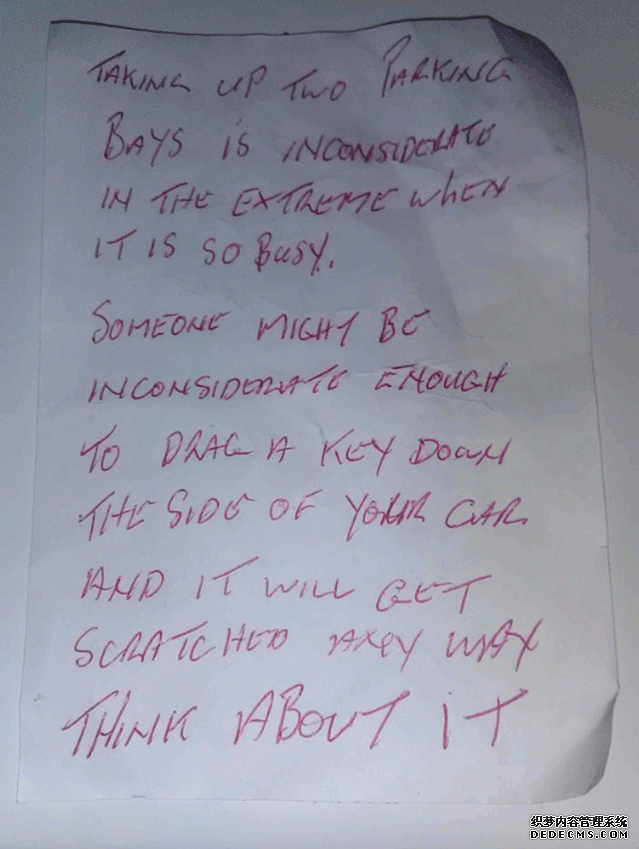 TAKING UP TWO PARKING
BAYS IS INCONSIDERATE
IN THE EXTREME WHEN
IT IS SO BUSY.
SOMEONE MIGHT BE
INCONSIDERATE ENOUGH
TO DRAG A KEY DOWN
THE SIDE OF YOUR CAR
AND IT WILL GET
SCRATCHED ANY WAY
THINK ABOUT IT
织梦内容管理系统
DEDECMS.COM